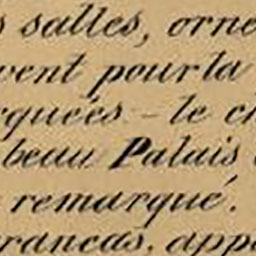 s salles, orne
vent pour la
rquées - le ch
beau Palais
remarqué.
rancas, app